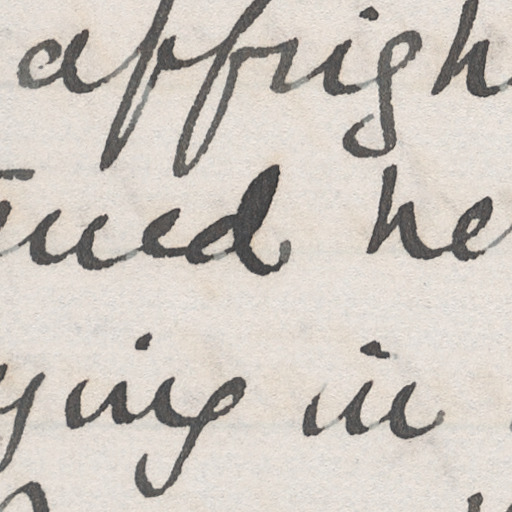 affrigh
ned he
ying in